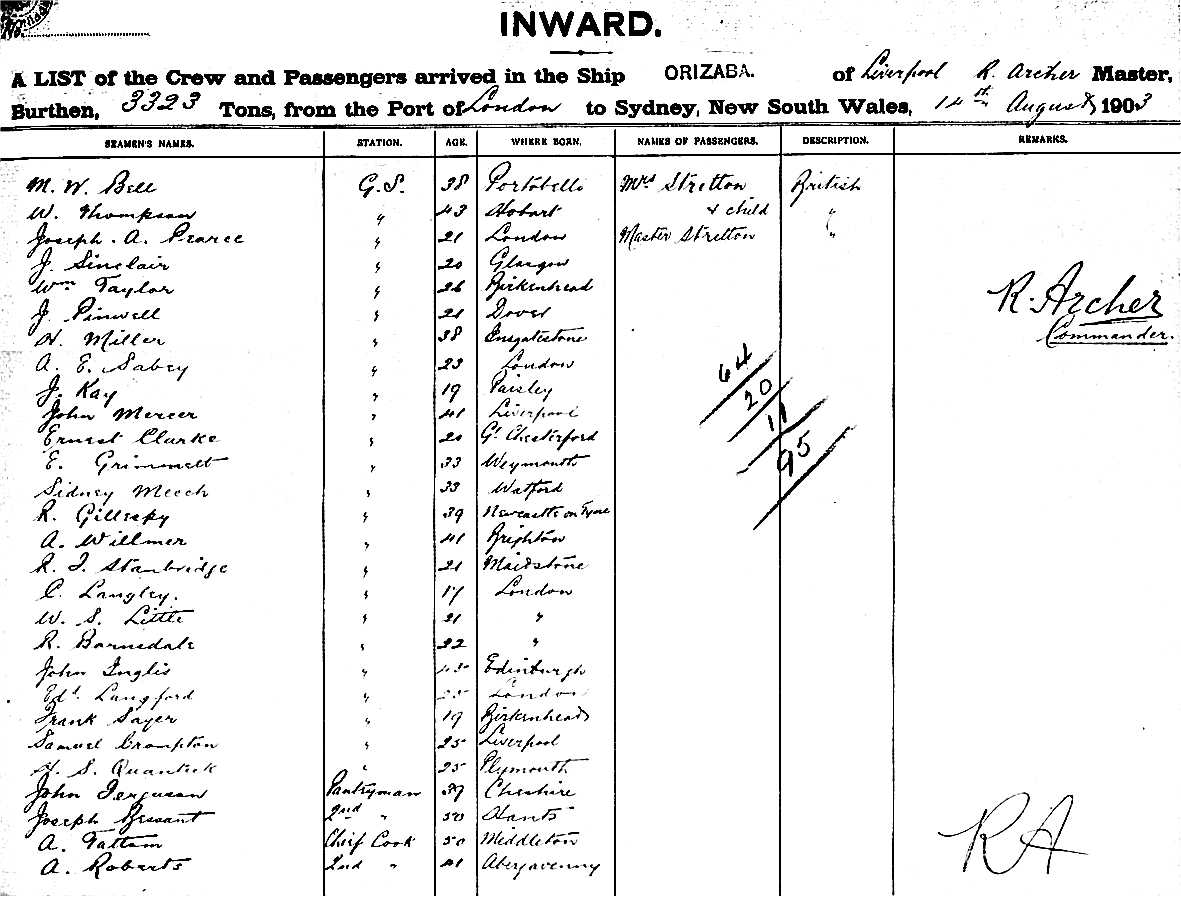 No.
INWARD.
A LIST of the Crew and Passengers arrived in the Ship ORIZABA. of Liverpool R. Archer Master,
Burthen, 3323 Tons, from the Port of London to Sydney, New South Wales, 14th August 1903
SEAMEN'S NAMES. STATION. AGE. WHERE BORN. NAMES OF PASSENGERS. DESCRIPTION. REMARKS.
M. W. Bell G.S. 38 Portobello Mrs Stretton British
W. Thompson " 43 Hobart & child "
Joseph. A. Pearce " 21 London Master Stretton "
J. Sinclair " 20 Glasgow
Wm Taylor " 26 Birkenhead
J. Pinwell " 21 Dover
H. Miller " 38 Ingatestone
R. Archer
Commander.
A. E. Sabey " 23 London
J. Kay " 19 Paisley
John Mercer " 41 Liverpool
Ernest Clarke " 20 Gt Chesterford
E. Grimmett " 33 Weymouth
Sidney Meech " 33 Watford
64
20
11
95
R. Gillespy " 39 Newcastle on Tyne
A. Willmer " 41 Brighton
R. J. Stanbridge " 21 Maidstone
C. Langley. " 17 London
W. S. Little " 21 "
R. Barnsdale " 22 "
John Inglis " Edinburgh
Edd. Langford " London
Frank Sayer " 19 Birkenhead
Samuel Crompton " 25 Liverpool
H. S. Quantick " 25 Plymouth
John Ferguson Pantryman 39 Cheshire
Joseph Bessant 2nd " 50 Hants
A. Tattam Chief Cook 50 Middleton
A. Roberts 2nd " 41 Abergavenny
RA